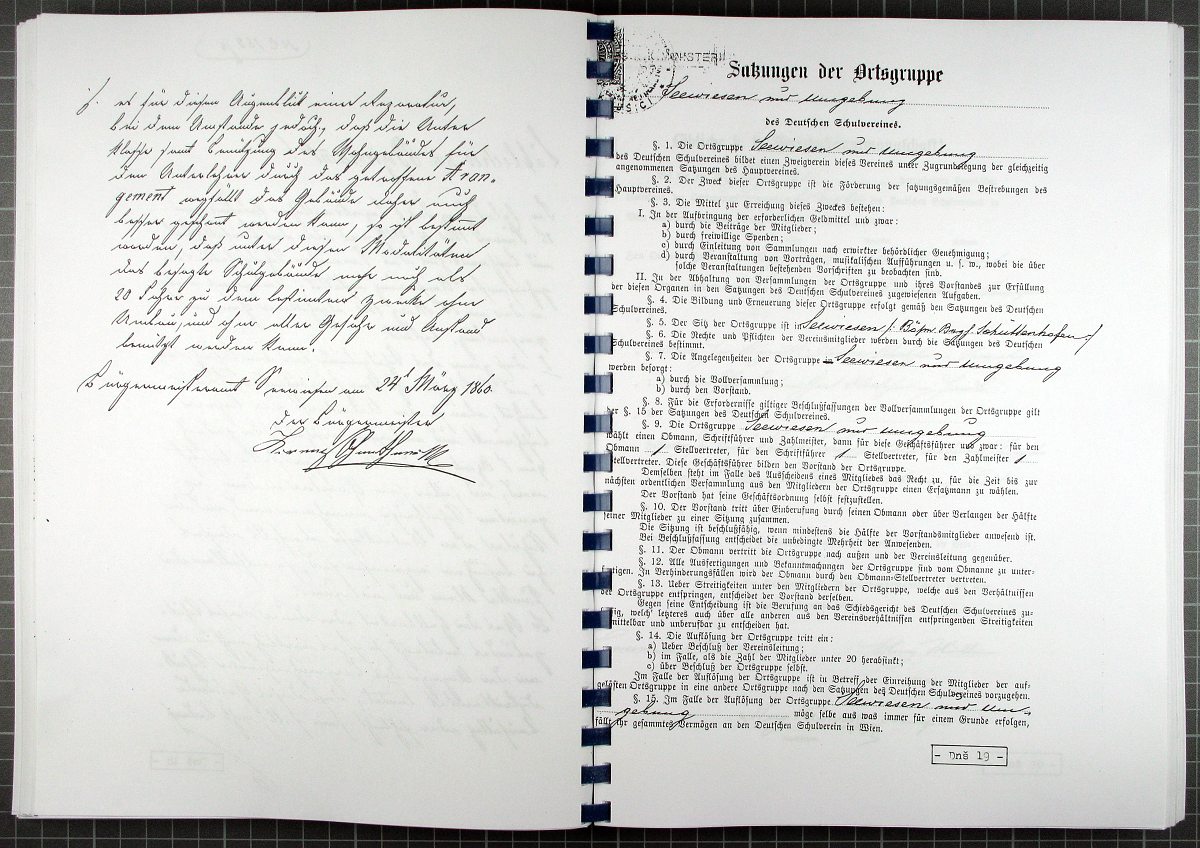 es für diesen Augenblick einer Reparatur,
bei dem Umstande jedoch, daß die Unter
klasse samt Benützung des Wohngebäudes für
den Unterlehrer durch das getroffene Aran-
gement wegfällt das Gebäude naher auch
besser geschont werden kann, so ist bestimt
worden, daß unter diesen Modalitäten
das besagte Schulgebäude mehr noch als
20 Jahre zu dem bestimten Zwecke ohne
Umbau, und ohne aller Gefahr und Anstand
benützt werden kann.
Bürgermeisteramt Seewiesen am 24t März 1860.
Der Bürgermeister
Satzungen der Ortsgruppe
Seewiesen und Umgebung
des Deutschen Schulvereines.
§. 1. Die Ortsgruppe Seewiesen und Umgebung
des Deutschen Schulvereines bildet einen Zweigverein dieses Vereines unter Zugrundelegung der gleichzeitig
angenommenen Satzungen des Hauptvereines.
§. 2. Der Zweck dieser Ortsgruppe ist die Förderung der satzungsgemäßen Bestrebungen des
Hauptvereines.
§. 3. Die Mittel zur Erreichung dieses Zweckes bestehen:
I. In der Aufbringung der erforderlichen Geldmittel und zwar:
a) durch die Beiträge der Mitglieder;
b) durch freiwillige Spenden;
c) durch Einleitung von Sammlungen nach erwirkter behördlicher Genehmigung;
d) durch Veranstaltung von Vorträgen, musikalischen Aufführungen u. s. w., wobei die über
solche Veranstaltungen bestehenden Vorschriften zu beobachten sind.
II. In der Abhaltung von Versammlungen der Ortsgruppe und ihres Vorstandes zur Erfüllung
der diesen Organen in den Satzungen des Deutschen Schulvereines zugewiesenen Aufgaben.
§. 4. Die Bildung und Erneuerung dieser Ortsgruppe erfolgt gemäß den Satzungen des Deutschen
Schulvereines.
§. 5. Der Sitz der Ortsgruppe ist in Seewiesen /: Böhm. Bezg. Schüttenhofen :/
§. 6. Die Rechte und Pflichten der Vereinsmitglieder werden durch die Satzungen des Deutschen
Schulvereines bestimmt.
§. 7. Die Angelegenheiten der Ortsgruppe Seewiesen und Umgebung
werden besorgt:
a) durch die Vollversammlung;
b) durch den Vorstand.
§. 8. Für die Erfordernisse giltiger Beschlußfassungen der Vollversammlungen der Ortsgruppe gilt
der §. 15 der Satzungen des Deutschen Schulvereines.
§. 9. Die Ortsgruppe Seewiesen und Umgebung
wählt einen Obmann, Schriftführer und Zahlmeister, dann für diese Geschäftsführer und zwar: für den
Obmann 1 Stellvertreter, für den Schriftführer 1 Stellvertreter, für den Zahlmeister 1
Stellvertreter. Diese Geschäftsführer bilden den Vorstand der Ortsgruppe.
Demselben steht im Falle des Ausscheidens eines Mitgliedes das Recht zu, für die Zeit bis zur
nächsten ordentlichen Versammlung aus den Mitgliedern der Ortsgruppe einen Ersatzmann zu wählen.
Der Vorstand hat seine Geschäftsordnung selbst festzustellen.
§. 10. Der Vorstand tritt über Einberufung durch seinen Obmann oder über Verlangen der Hälfte
seiner Mitglieder zu einer Sitzung zusammen.
Die Sitzung ist beschlußfähig, wenn mindestens die Hälfte der Vorstandsmitglieder anwesend ist.
Bei Beschlußfassung entscheidet die unbedingte Mehrheit der Anwesenden.
§. 11. Der Obmann vertritt die Ortsgruppe nach außen und der Vereinsleitung gegenüber.
§. 12. Alle Ausfertigungen und Bekanntmachungen der Ortsgruppe sind vom Obmanne zu unter-
fertigen. In Verhinderungsfällen wird der Obmann durch den Obmann-Stellvertreter vertreten.
§. 13. Ueber Streitigkeiten unter den Mitgliedern der Ortsgruppe, welche aus den Verhältnissen
der Ortsgruppe entspringen, entscheidet der Vorstand derselben.
Gegen seine Entscheidung ist die Berufung an das Schiedsgericht des Deutschen Schulvereines zu-
ig, welch' letzteres auch über alle anderen aus den Vereinsverhältnissen entspringenden Streitigkeiten
mittelbar und unberufbar zu entscheiden hat.
§. 14. Die Auflösung der Ortsgruppe tritt ein:
a) Ueber Beschluß der Vereinsleitung;
b) im Falle, als die Zahl der Mitglieder unter 20 herabsinkt;
c) über Beschluß der Ortsgruppe selbst.
Im Falle der Auflösung der Ortsgruppe ist in Betreff der Einreihung der Mitglieder der auf-
gelösten Ortsgruppe in eine andere Ortsgruppe nach den Satzungen des Deutschen Schulvereines vorzugehen.
§. 15. Im Falle der Auflösung der Ortsgruppe Seewiesen und Um-
gebung möge selbe aus was immer für einem Grunde erfolgen,
fällt ihr gesammtes Vermögen an den Deutschen Schulverein in Wien.
- Dnš 19 -